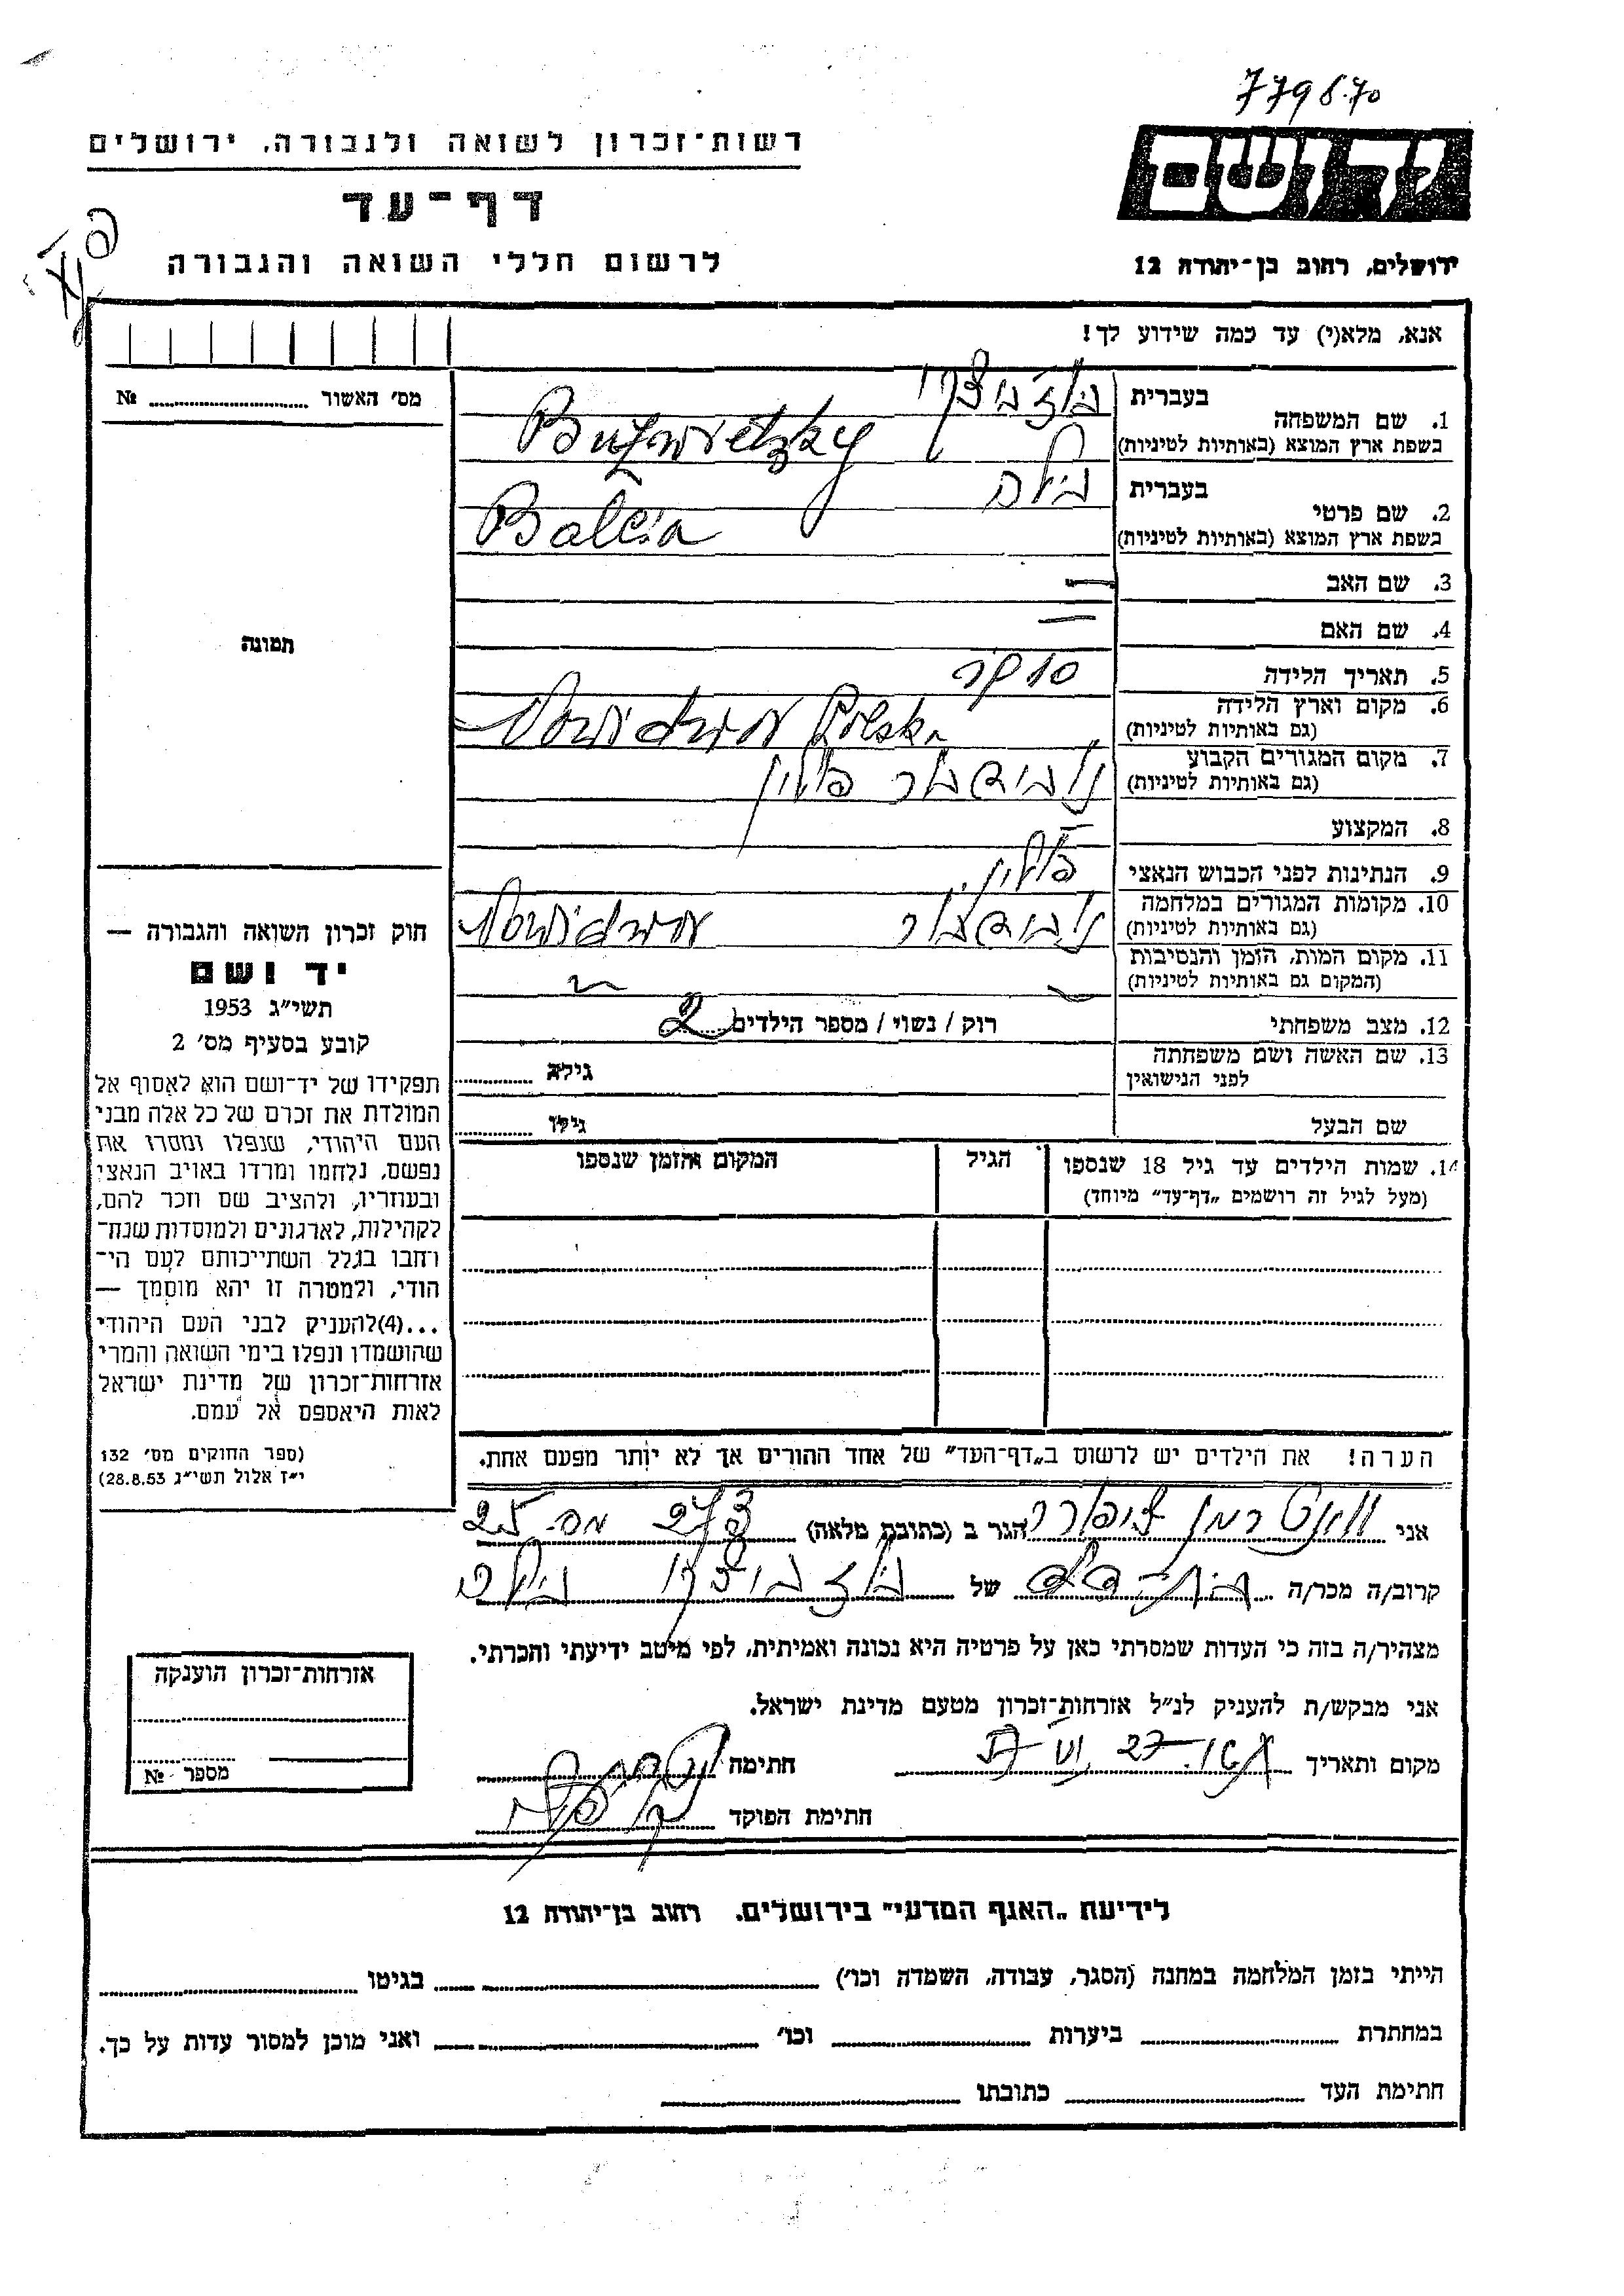 779870
רשות־זכרון לשואה ולגבורה, ירושלים
דף־עד
לרשום חללי השואה והגבורה
יד ושם
ירושלים, רחוב בן־יהודה 12
אנא, מלא(י) עד כמה שידוע לך!
מס׳ האשור № 
תמונה
חוק זכרון השואה והגבורה —
יד ושם
תשי״ג 1953
קובע בסעיף מס׳ 2
תפקידו של יד־ושם הוא לאסוף אל
המולדת את זכרם של כל אלה מבני
העם היהודי, שנפלו ומסרו את
נפשם, נלחמו ומרדו באויב הנאצי
ובעוזריו, ולהציב שם וזכר להם,
לקהילות, לארגונים ולמוסדות שנח־
רחבו בגלל השתייכותם לעם הי־
הודי, ולמטרה זו יהא מוסמך —
...(4)להעניק לבני העם היהודי
שהושמדו ונפלו בימי השואה והמרי
אזרחות־זכרון של מדינת ישראל
לאות היאספם אל עמם.
(ספר החוקים מס׳ 132
י״ז אלול תשי״ג 28.8.53)
בעברית
1. שם המשפחה
בשפת ארץ המוצא (באותיות לטיניות) Buzwietzky
בעברית בילה
2. שם פרטי
בשפת ארץ המוצא (באותיות לטיניות) Balcia
3. שם האב —
4. שם האם —
5. תאריך הלידה
6. מקום וארץ הלידה Nowidwor Polska
(גם באותיות לטיניות)
7. מקום המגורים הקבוע נובידבור פולין
(גם באותיות לטיניות)
8. המקצוע —
9. הנתינות לפני הכבוש הנאצי פולין
10. מקומות המגורים במלחמה נובידבור Nowidwor
(גם באותיות לטיניות)
11. מקום המות, הזמן והנסיבות
(המקום גם באותיות לטיניות)
12. מצב משפחתי רוק / נשוי / מספר הילדים 2
13. שם האשה ושם משפחתה גילה
לפני הנישואין
שם הבעל גילו
14. שמות הילדים עד גיל 18 שנספו הגיל המקום והזמן שנספו
(מעל לגיל זה רושמים „דף־עד״ מיוחד)
הערה! את הילדים יש לרשום ב„דף־העד״ של אחד ההורים אך לא יותר מפעם אחת.
אני ציפורה הגר ב (כתובת מלאה) 25
קרוב/ה מכר/ה של
מצהיר/ה בזה כי העדות שמסרתי כאן על פרטיה היא נכונה ואמיתית, לפי מיטב ידיעתי והכרתי.
אני מבקש/ת להעניק לנ״ל אזרחות־זכרון מטעם מדינת ישראל.
מקום ותאריך 27 חתימה
חתימת הפוקד
אזרחות־זכרון הוענקה
מספר №
לידיעת „האגף המדעי״ בירושלים, רחוב בן־יהודה 12
הייתי בזמן המלחמה במחנה (הסגר, עבודה, השמדה וכו׳) בגיטו
במחתרת ביערות וכו׳ ואני מוכן למסור עדות על כך.
חתימת העד כתובתו